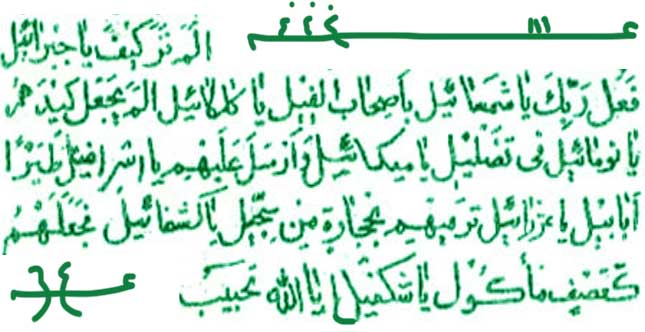 الم تر كيف يا جبرائيل
فعل ربك يا شمعائيل باصحاب الفيل يا كلكائيل الم يجعل كيدهم
يا نومائيل في تضليل يا ميكائيل وارسل عليهم يا اسرافيل طيرا
ابابيل يا عزرائيل ترميهم بحجارة من سجيل يا كشفائيل فجعلهم
كعصف مأكول يا شكفيل يا الله